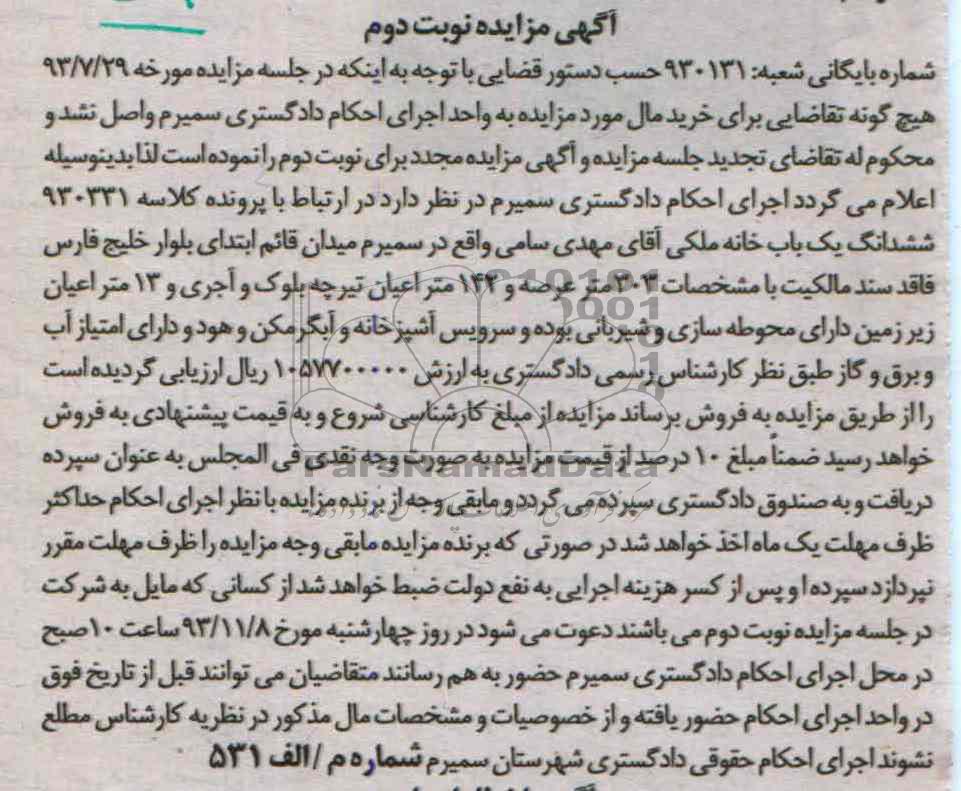 آگهی مزایده نوبت دوم
شماره بایگانی شعبه: ۹۳۰۱۳۱ حسب دستور قضایی با توجه به اینکه در جلسه مزایده مورخه ۹۳/۷/۲۹
هیچ گونه تقاضایی برای خرید مال مورد مزایده به واحد اجرای احکام دادگستری سمیرم واصل نشد و
محکوم له تقاضای تجدید جلسه مزایده و آگهی مزایده مجدد برای نوبت دوم را نموده است لذا بدینوسیله
اعلام می گردد اجرای احکام دادگستری سمیرم در نظر دارد در ارتباط با پرونده کلاسه ۹۳۰۳۳۱
ششدانگ یک باب خانه ملکی آقای مهدی سامی واقع در سمیرم میدان قائم ابتدای بلوار خلیج فارس
فاقد سند مالکیت با مشخصات ۳۰۲ متر عرصه و ۱۴۲ متر اعیان تیرچه بلوک و آجری و ۱۳ متر اعیان
زیر زمین دارای محوطه سازی و شیربانی بوده و سرویس آشپزخانه و آبگرمکن و هود و دارای امتیاز آب
و برق و گاز طبق نظر کارشناس رسمی دادگستری به ارزش ۱۰۵۷۷۰۰۰۰۰ ریال ارزیابی گردیده است
را از طریق مزایده به فروش برساند مزایده از مبلغ کارشناسی شروع و به قیمت پیشنهادی به فروش
خواهد رسید ضمناً مبلغ ۱۰ درصد از قیمت مزایده به صورت وجه نقدی فی المجلس به عنوان سپرده
دریافت و به صندوق دادگستری سپرده می گردد و مابقی وجه از برنده مزایده با نظر اجرای احکام حداکثر
ظرف مهلت یک ماه اخذ خواهد شد در صورتی که برنده مزایده مابقی وجه مزایده را ظرف مهلت مقرر
نپردازد سپرده او پس از کسر هزینه اجرایی به نفع دولت ضبط خواهد شد از کسانی که مایل به شرکت
در جلسه مزایده نوبت دوم می باشند دعوت می شود در روز چهارشنبه مورخ ۹۳/۱۱/۸ ساعت ۱۰صبح
در محل اجرای احکام دادگستری سمیرم حضور به هم رسانند متقاضیان می توانند قبل از تاریخ فوق
در واحد اجرای احکام حضور یافته و از خصوصیات و مشخصات مال مذکور در نظریه کارشناس مطلع
نشوند اجرای احکام حقوقی دادگستری شهرستان سمیرم شماره م /الف ۵۳۱